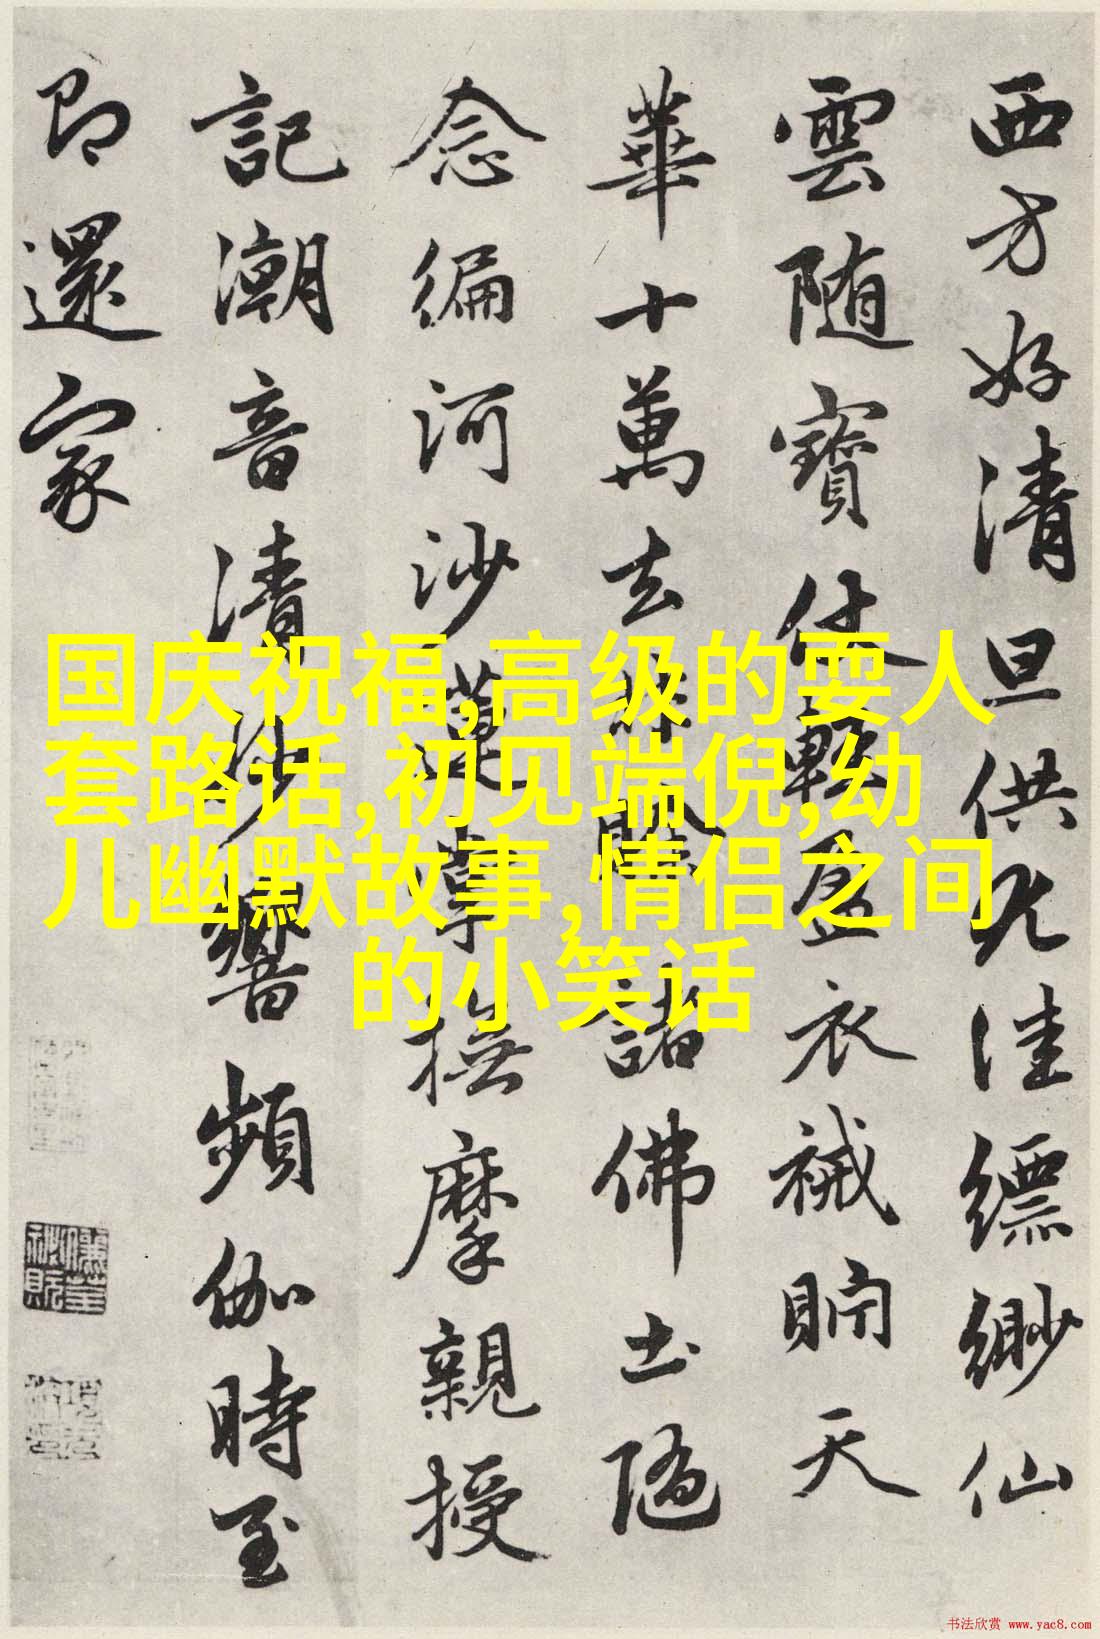 西方好清旦供尤佳縹緲仙
雲随寶仗輕盈衣裓貯天
華十萬去非賒 諸佛土隨
念編河沙蓮掌撫摩親授
記潮音清妙響頻伽時至
即還家
国庆祝福,高级的耍人
套路话,初见端倪,幼
儿幽默故事,情侣之间
的小笑话
书法欣赏 www.yac8.com